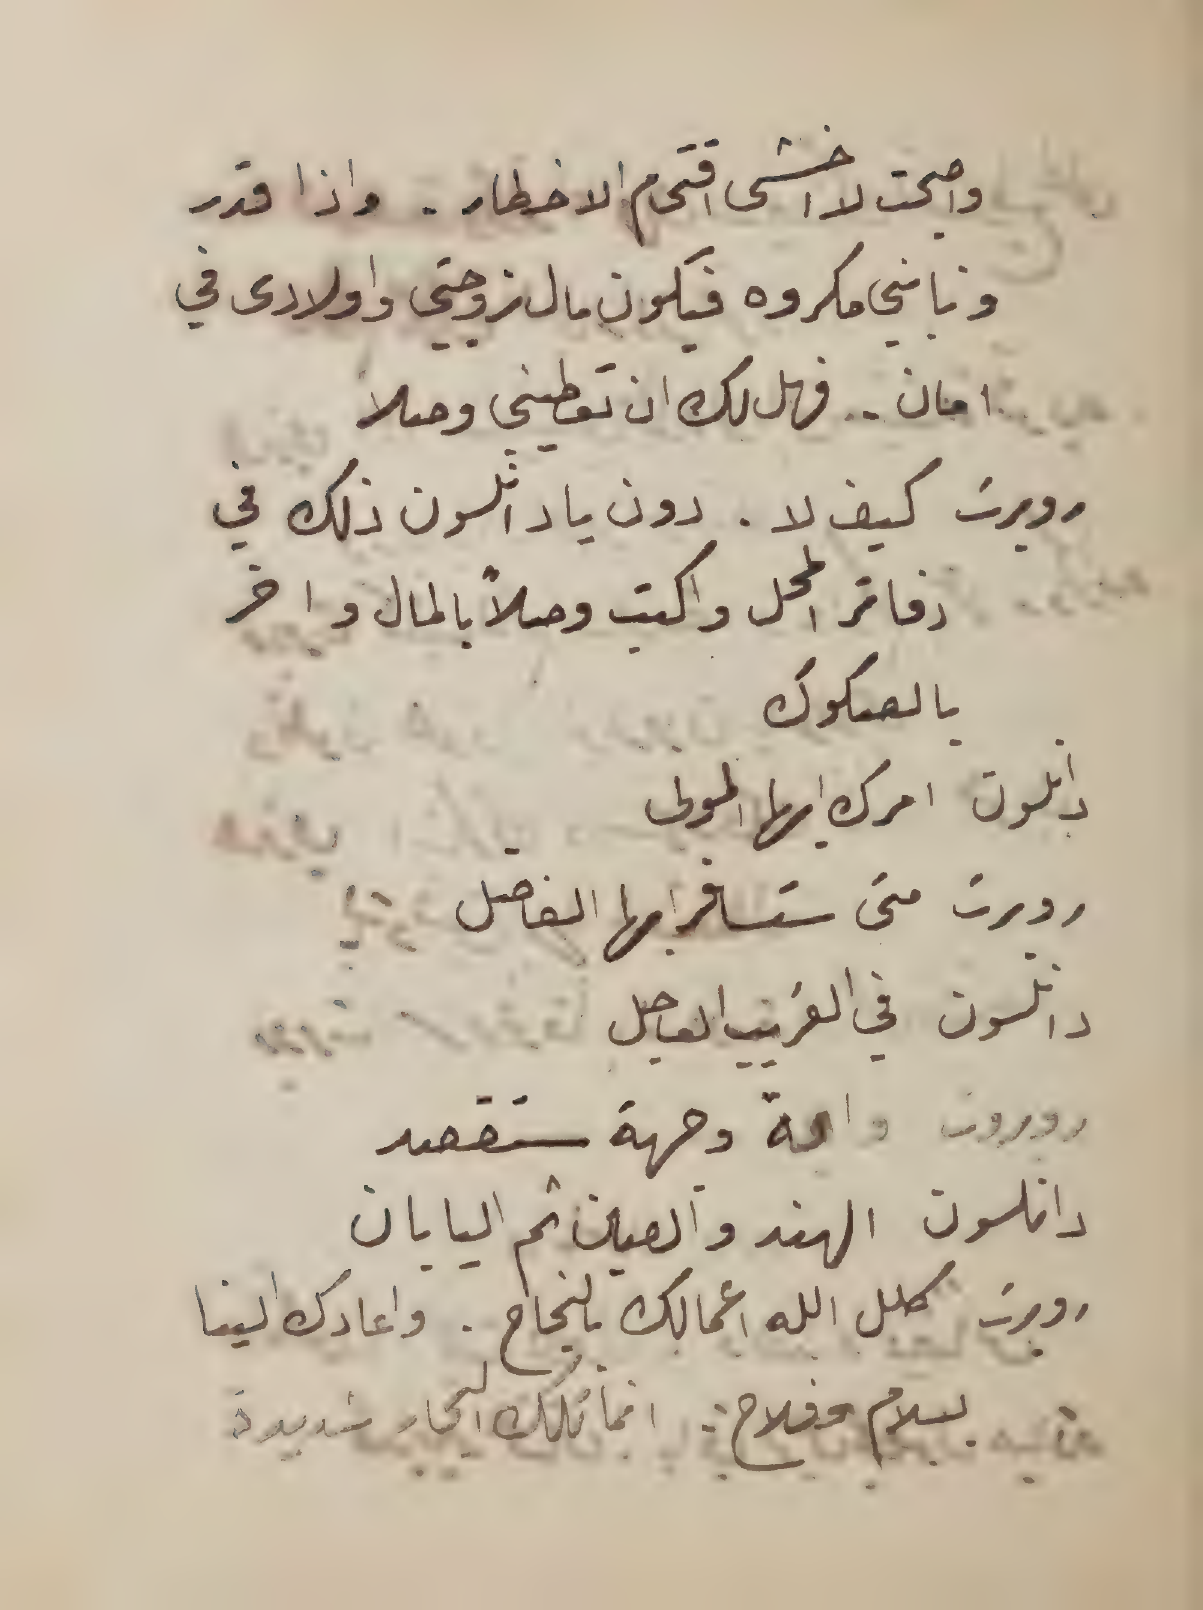 واصبحت لا اخشى اقتحم الاخطار . واذا قدر
ونابني مكروه فيكون مال زوجتي واولادى في
امان .. فهل لك ان تعطيني وصلا
روبرت كيف لا . دون يا دانلسون ذلك في
دفاتر المحل واكتب وصلاً بالمال واخر
بالصكوك
دانلسون امرك ايها المولى
روبرت متى ستسافر ايها الفاضل
دانلسون في القريب العاجل
روبروت واية وجهة ستقصد
دانلسون الهند والصين ثم اليابان
روبرت كلل الله اعمالك بالنجاح . واعادك الينا
بسلام وفلاح : التجار شديدة